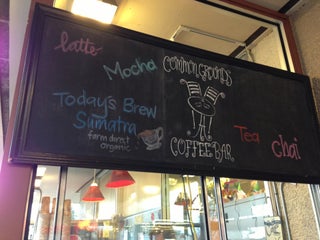 latte
Mocha
COMMON GROUNDS
COFFEE BAR
Today's Brew
Sumatra
farm direct
organic
Tea
chai